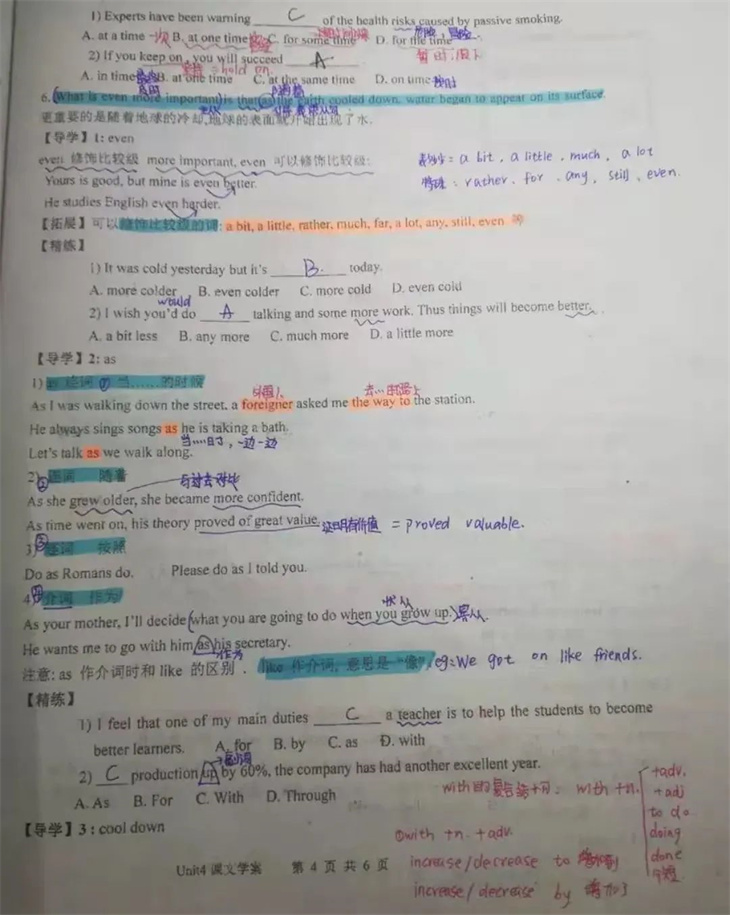 1) Experts have been warning C of the health risks caused by passive smoking.
A. at a time 一次 B. at one time C. for some time D. for the time
2) If you keep on, you will succeed A
坚持 = hold on.
A. in time B. at one time C. at the same time D. on time 按时
6. What is even more important is that as the earth cooled down, water began to appear on its surface.
更重要的是随着地球的冷却,地球的表面就开始出现了水.
【导学】1: even
even 修饰比较级 more important, even 可以修饰比较级:
a bit, a little, much, a lot
Yours is good, but mine is even better.
rather, for, any, still, even.
He studies English even harder.
【拓展】可以修饰比较级的词: a bit, a little, rather, much, far, a lot, any, still, even 等
【精练】
1) It was cold yesterday but it's B. today.
A. more colder B. even colder C. more cold D. even cold
would
2) I wish you'd do A talking and some more work. Thus things will become better.
A. a bit less B. any more C. much more D. a little more
【导学】2: as
1) as 连词 ① 当……的时候
外国人 去…的路上
As I was walking down the street, a foreigner asked me the way to the station.
He always sings songs as he is taking a bath.
当…时, 一边一边
Let's talk as we walk along.
2) ② 连词 随着
与过去对比
As she grew older, she became more confident.
As time went on, his theory proved of great value. 证明有价值 = proved valuable.
3) ③ 连词 按照
Do as Romans do. Please do as I told you.
4) ④ 介词 作为
状从
As your mother, I'll decide what you are going to do when you grow up. 宾从
He wants me to go with him as his secretary.
作为
注意: as 作介词时和 like 的区别. like 作介词, 意思是“像” eg: We got on like friends.
【精练】
1) I feel that one of my main duties C a teacher is to help the students to become
better learners. A. for B. by C. as D. with
副词
2) C production up by 60%, the company has had another excellent year.
with的复合结构: with +n.
+adv.
+adj
to do
doing
done
介短
A. As B. For C. With D. Through
【导学】3 : cool down
①with +n. +adv.
increase/decrease to 增加到
increase/decrease by 增加了
Unit4 课文学案 第 4 页 共 6 页